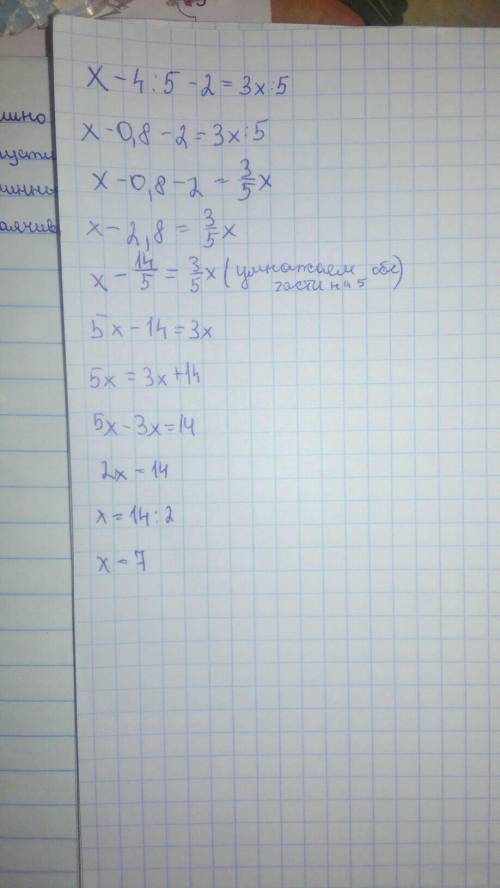 x - 4 : 5 - 2 = 3x : 5
x - 0,8 - 2 = 3x : 5
x - 0,8 - 2 = 3/5 x
x - 2,8 = 3/5 x
x - 14/5 = 3/5 x (умножаем обе
части на 5)
5x - 14 = 3x
5x = 3x + 14
5x - 3x = 14
2x = 14
x = 14 : 2
x = 7